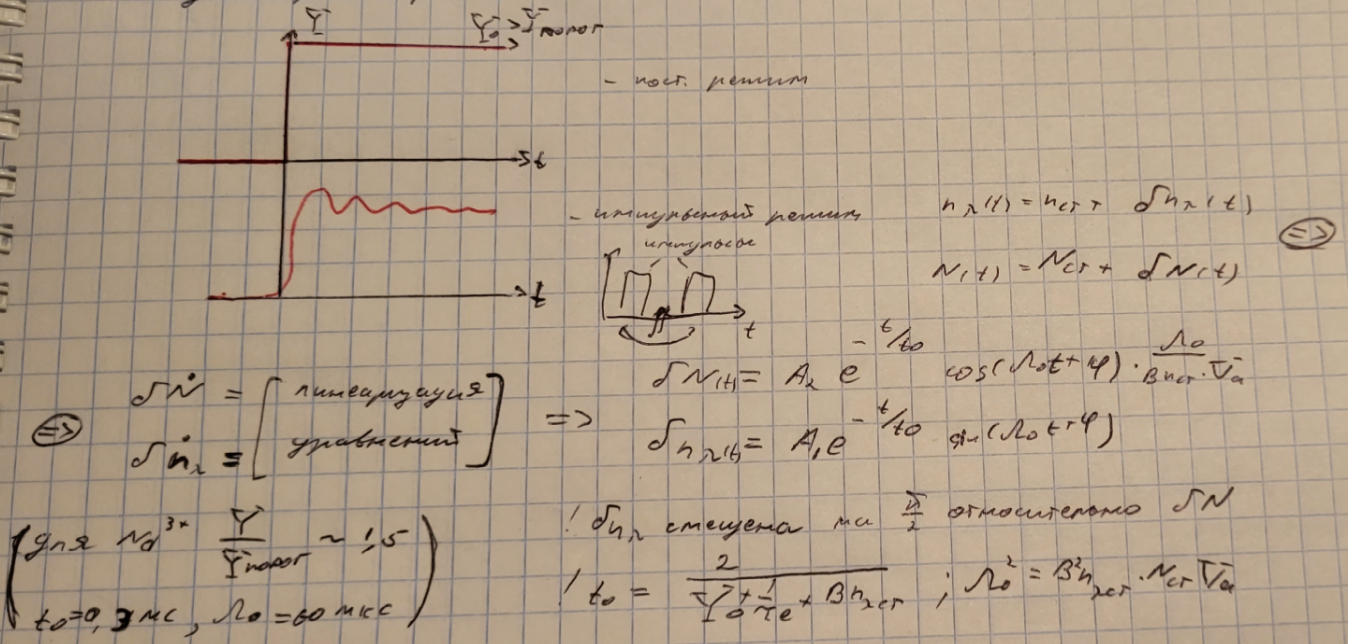 Y̅ Y̅₀ > Y̅порог
- пост. режим
t
- импульсный режим
импульсы
t
t
n_λ(t) = n_ст + δn_λ(t)
=>
N(t) = N_ст + δN(t)
=> δṄ = [ линеаризация
δṅ_λ = уравнений ] =>
δN(t) = A₂ e^(-t/t₀) cos(Ω₀t + φ) · Ω₀ / (B n_ст · V̅_a)
δn_λ(t) = A₁ e^(-t/t₀) sin(Ω₀t + φ)
( для Nd³⁺ Y̅ / Y̅порог ~ 1,5
t₀ = 0,3 мс , Ω₀ = 60 мкс )
! δn_λ смещена на π/2 относительно δN
! t₀ = 2 / (Y̅₀ + 1/τ_e + B n_λст) ; Ω₀² = B² n_λст · N_ст V̅_a